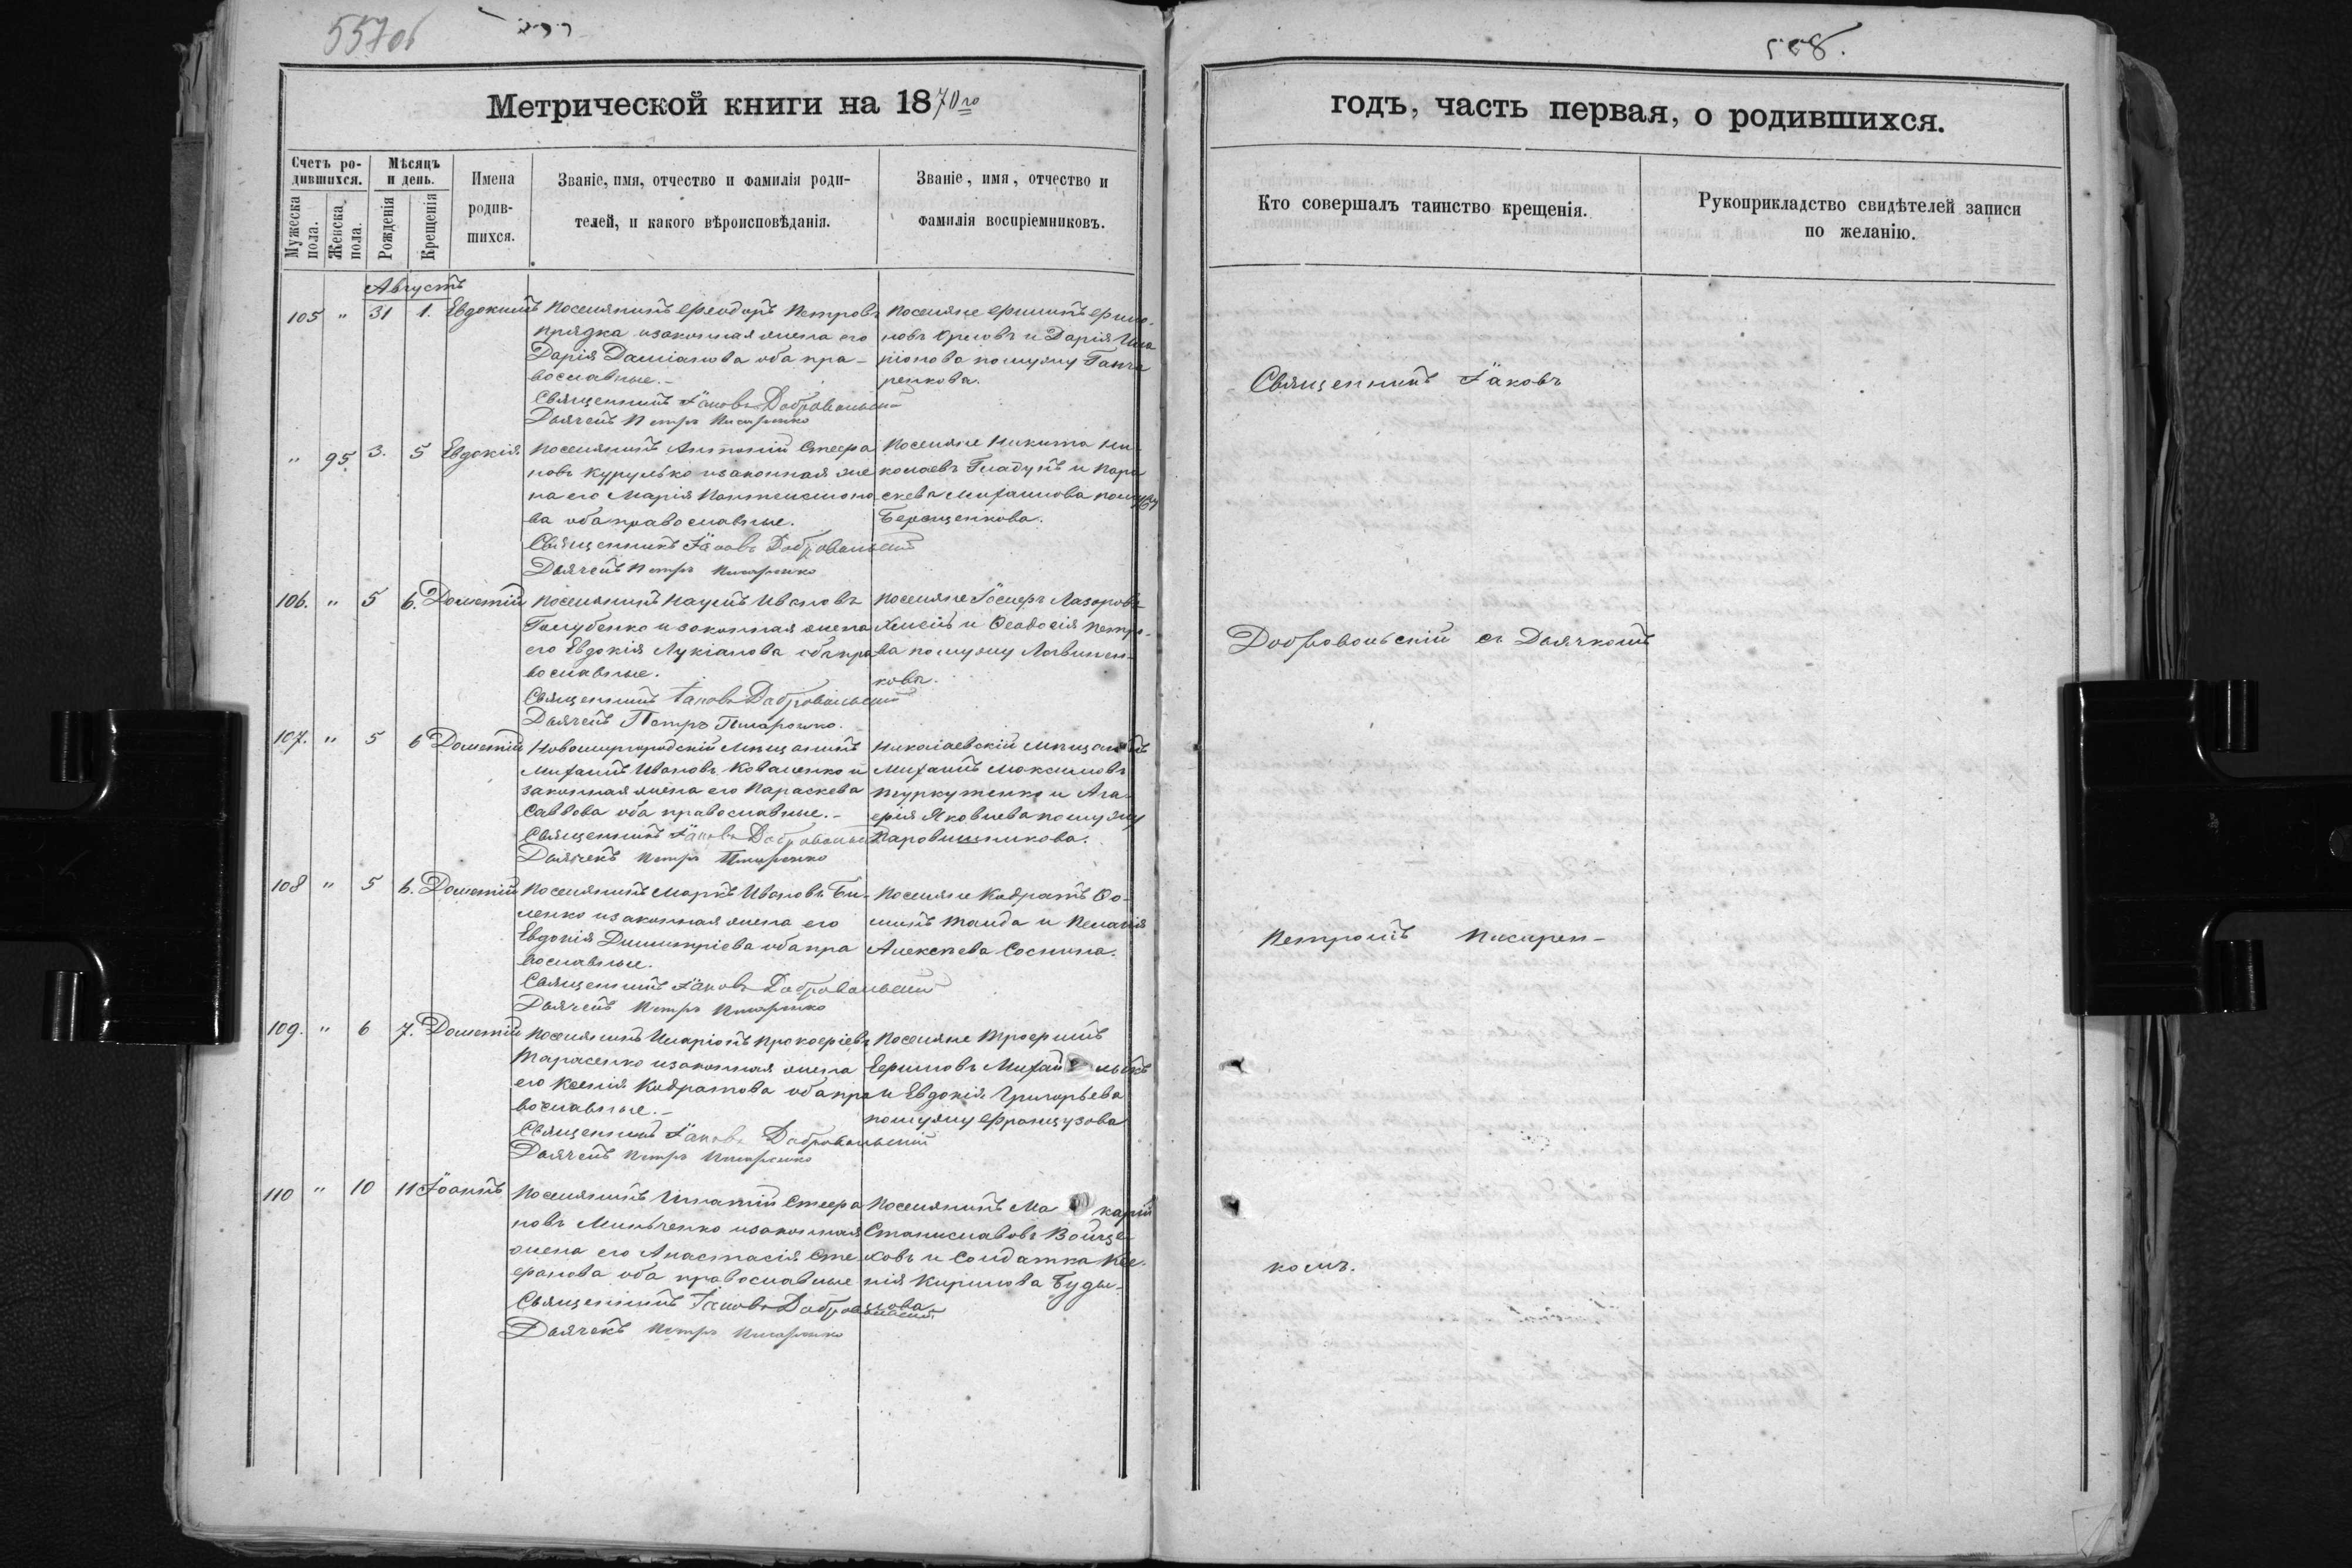 557об
558.
Метрической книги на 1870го
годъ, часть первая, о родившихся.
Счетъ родившихся.
Мужеска пола.
Женска пола.
Мѣсяцъ и день.
Рожденія
Крещенія
Имена родившихся.
Званіе, имя, отчество и фамилія родителей, и какого вѣроисповѣданія.
Званіе, имя, отчество и фамилія воспріемниковъ.
Кто совершалъ таинство крещенія.
Рукоприкладство свидѣтелей записи по желанію.
Августъ
105 " 31 1. Евдокимъ
Поселянинъ Феодоръ Петровъ
Прядка и законная жена его
Дарія Даміанова оба пра-
вославные.-
Священникъ Іаковъ Добровольскій
Дьячекъ Петръ Писаренко
Поселяне Филипъ Фили-
повъ Орловъ и Дарія Ила
ріонова по мужу Ганча
ренкова.
" 95 3. 5 Евдокія
Поселянинъ Антоній Стефа
новъ Курулько и законная же
на его Марія Пантелеимоно
ва оба православные.
Священникъ Іаковъ Добровольскій
Дьячекъ Петръ Писаренко
Поселяне Никита Ни-
колаевъ Гладунъ и Пара
скева Михаилова по мужу
Берещенкова.
106. " 5 6. Дометій
Поселянинъ Наумъ Ивановъ
Голубенко и законная жена
его Евдокія Лукіанова оба пра
вославные.
Священникъ Іаковъ Добровольскій
Дьячекъ Петръ Писаренко.
Поселяне Іосифъ Лазаровъ
Хмель и Ѳеодосія Петро-
ва по мужу Логвинен-
кова.
107. " 5 6 Дометій
Новомиргородскій Мѣщанинъ
Михаилъ Ивановъ Коваленко и
законная жена его Параскева
Саввова оба православные.-
Священникъ Іаковъ Добровольскій
Дьячекъ Петръ Писаренко
Николаевскій Мѣщанинъ
Михаилъ Максимовъ
Туркутенко и Ага-
фія Яковлева по мужу
108 " 5 6. Дометій
Поселянинъ Маркъ Ивановъ Би-
ленко и законная жена его
Евдокія Димитріева оба пра
вославные.
Священникъ Іаковъ Добровольскій
Дьячекъ Петръ Писаренко
Поселяне Кодратъ Ѳо-
минъ Танда и Пелагія
Алексѣева Соснина.
109. " 6 7. Дометій
Поселянинъ Иларіонъ Прокофіевъ
Тарасенко и законная жена
его Ксенія Кодратова оба пра
вославные.-
Священникъ Іаковъ Добровольскій
Дьячекъ Петръ Писаренко
Поселяне Трофимъ
и Евдокія Григорьева
по мужу Французова
110 " 10 11 Іоаннъ
Поселянинъ Игнатій Стефа
новъ Минченко и законная
жена его Анастасія Сте
фанова оба православные
Священникъ Іаковъ Добровольскій
Дьячекъ Петръ Писаренко
Поселянинъ Макарій
Станиславовъ Войце-
ховъ и Солдатка Ксе
нія Кирилова Буды-
лова.
Священникъ Іаковъ
Добровольскій съ Дьячкомъ
Петромъ Писарен-
комъ.